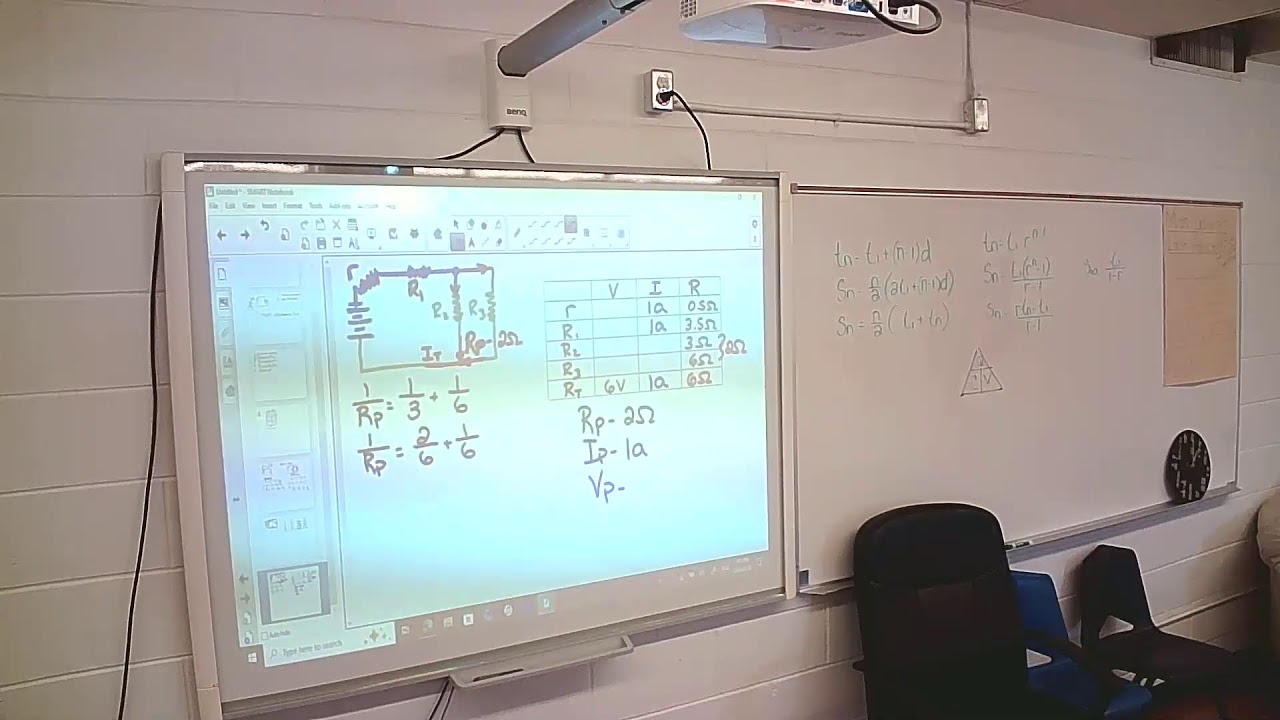 BenQ
Untitled* - SMART Notebook
File Edit View Insert Format Tools Add-ons Help
r
R₁
R₂ R₃
Rp-2Ω
I_T
1/Rp = 1/3 + 1/6
1/Rp = 2/6 + 1/6
V I R
r 1a 0.5Ω
R₁ 1a 3.5Ω
R₂ 3Ω
R₃ 6Ω } 2Ω
R_T 6V 1a 6Ω
Rp-2Ω
Ip-1a
Vp-
Type here to search
tn = t₁+(n-1)d
Sn = n/2 (2t₁+(n-1)d)
Sn = n/2 ( t₁ + tn)
tn = t₁ rⁿ⁻¹
Sn = t₁(rⁿ-1)/r-1
Sn = rtn-t₁/r-1
S∞ t₁/1-r